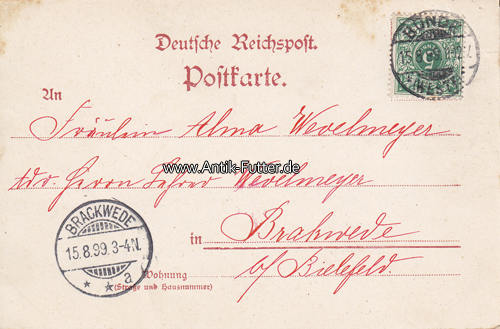 Deutsche Reichspost.
Postkarte.
BÜNDE
15 8 99
(WESTF
An
Fräulein Alma Wevelmeyer
www.Antik-Futter.de
adr. Herrn Lehrer Wevelmeyer
BRACKWEDE
15.8.99.3-4N.
* * a
in Brakwede
Wohnung
(Straße und Hausnummer)
b/ Bielefeld.